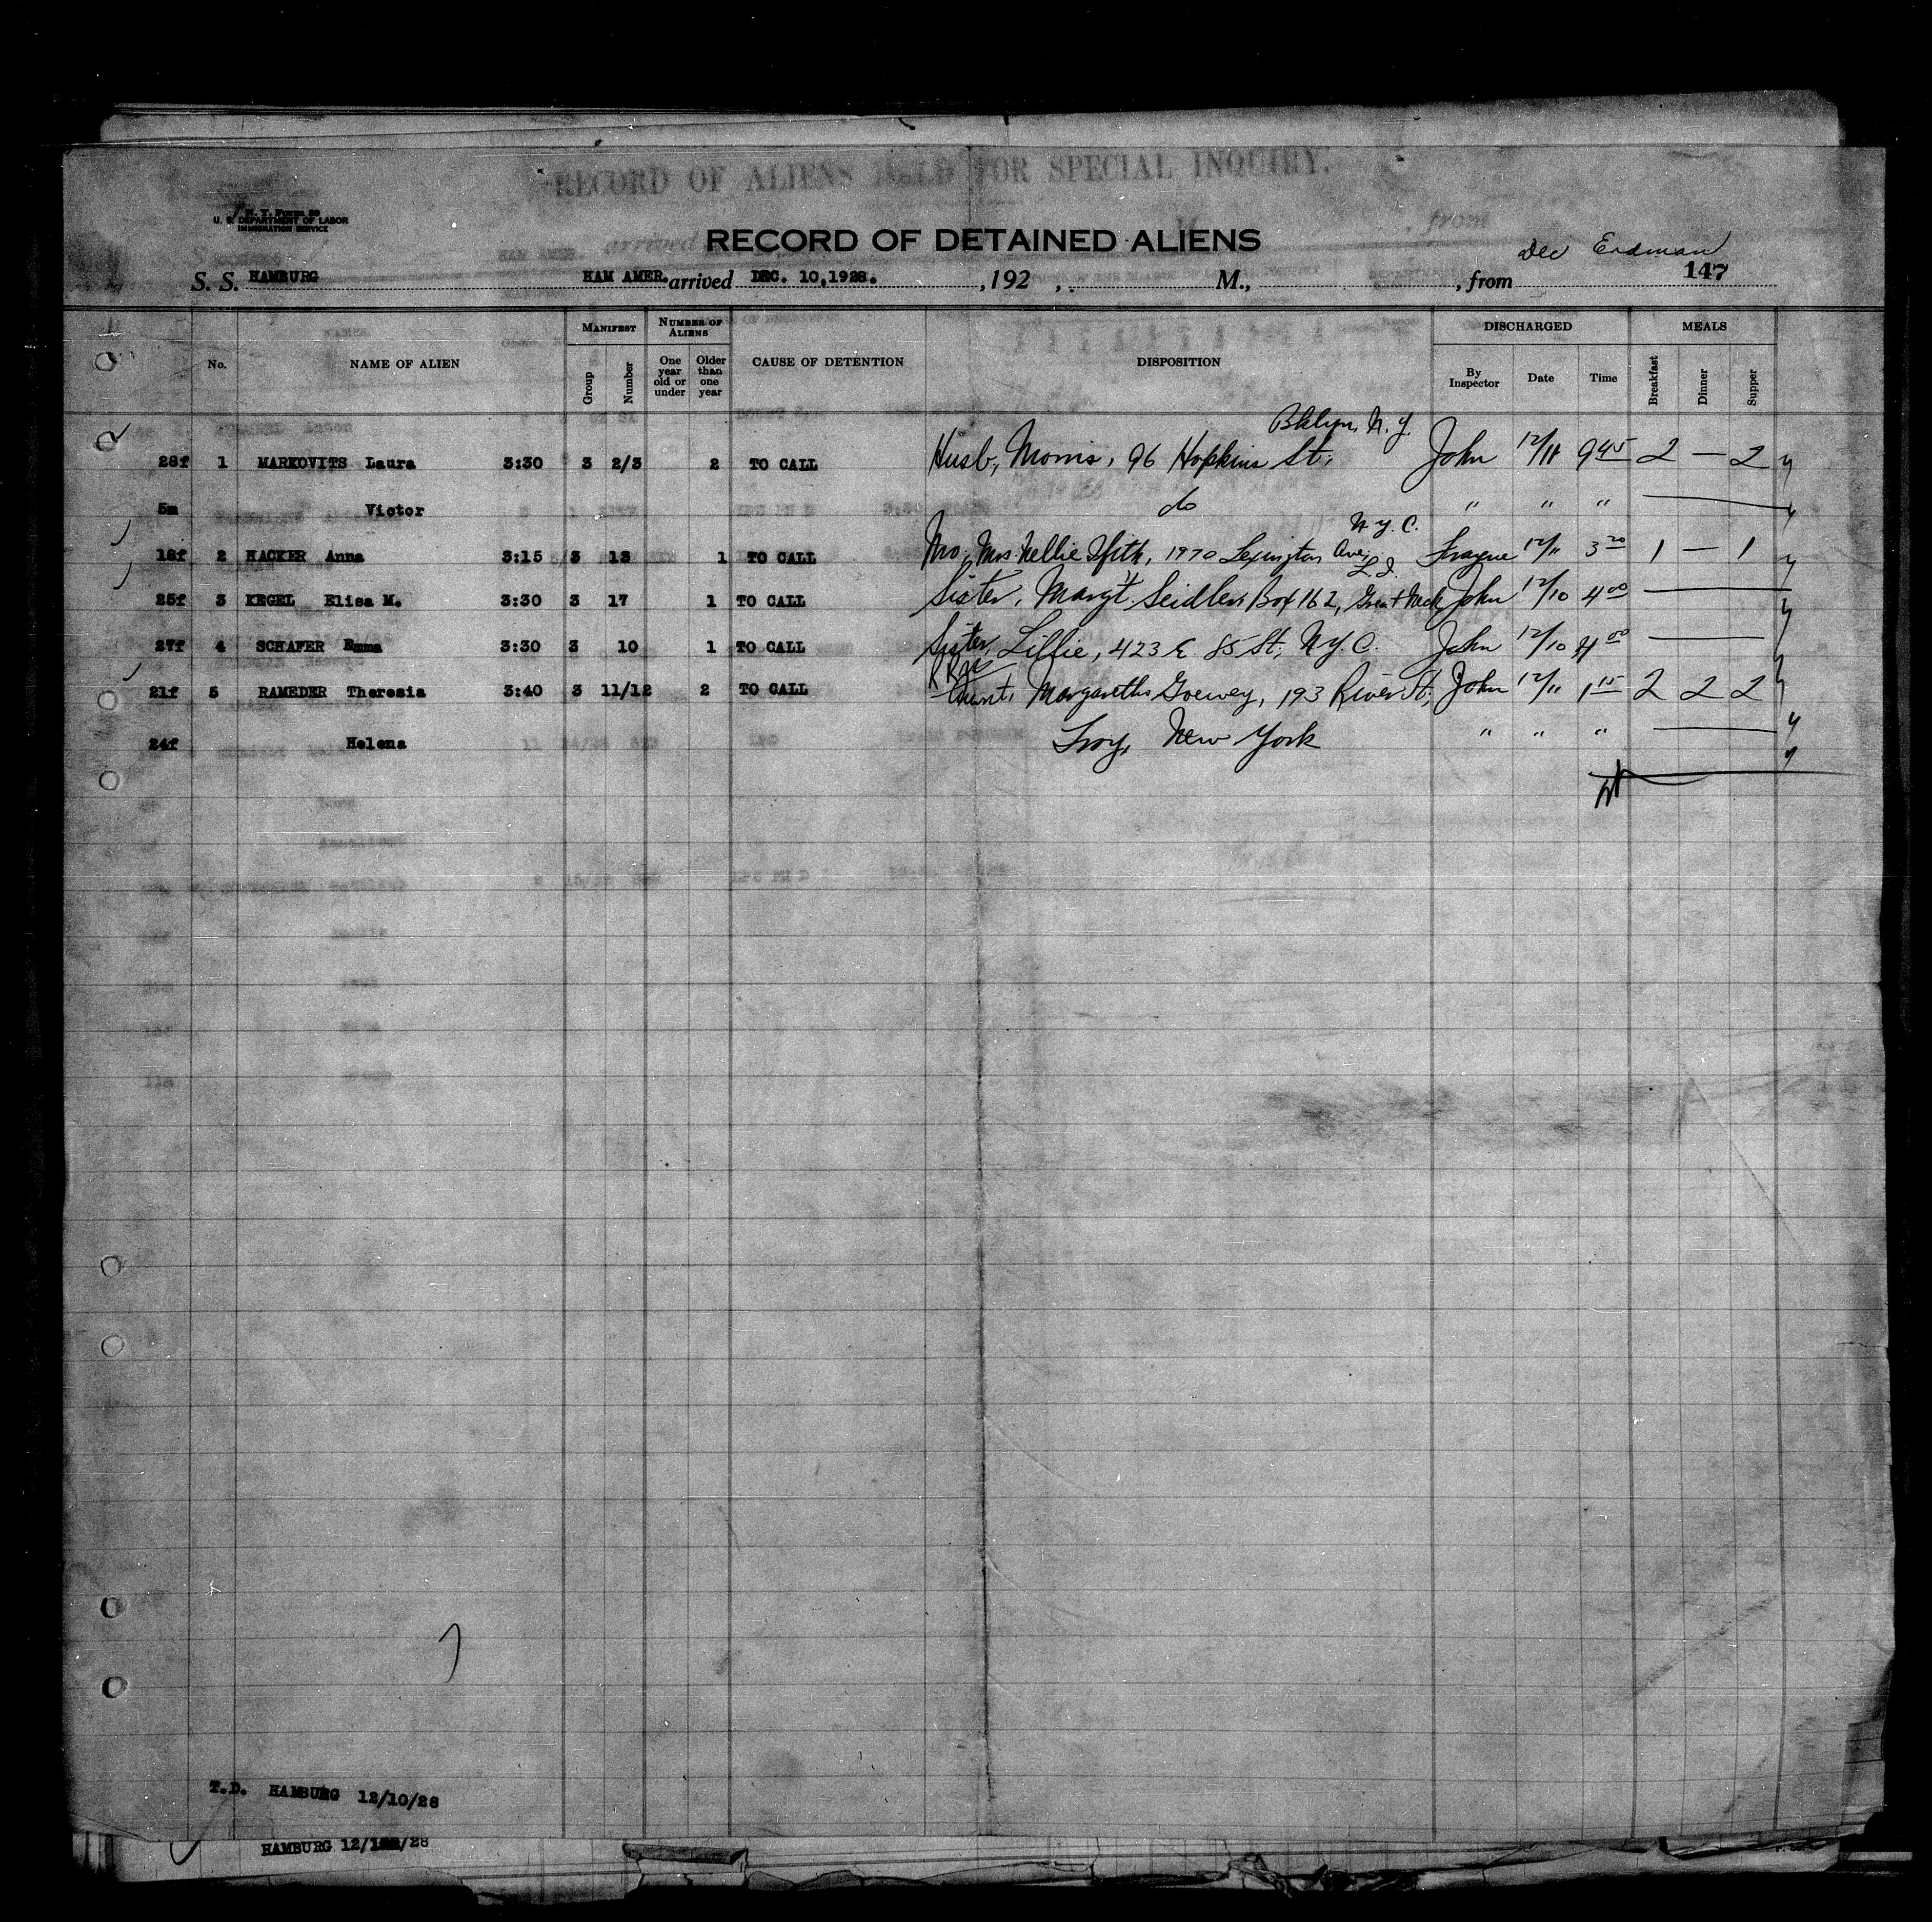 RECORD OF ALIENS HELD FOR SPECIAL INQUIRY.
N. Y. Form 99
U. S. DEPARTMENT OF LABOR
IMMIGRATION SERVICE
RECORD OF DETAINED ALIENS
Dec Erdman
S. S. HAMBURG HAM AMER. arrived DEC. 10,1928. ,192 , M., , from 147
No. NAME OF ALIEN MANIFEST Group Number NUMBER OF ALIENS One year old or under Older than one year CAUSE OF DETENTION DISPOSITION DISCHARGED By Inspector Date Time MEALS Breakfast Dinner Supper
Bklyn, N. Y.
28f 1 MARKOVITS Laura 3:30 3 2/3 2 TO CALL Husb, Morris, 96 Hopkins St, John 12/11 9 45 2 — 2
5m Victor do " " "
N. Y. C.
18f 2 HACKER Anna 3:15 3 13 1 TO CALL Mo, Mrs. Nellie 1970 Lexington Ave, 12/11 3 20 1 — 1
L. I.
25f 3 KEGEL Elisa M. 3:30 3 17 1 TO CALL Sister, Marg't. Seidler, Box 162, Great Neck, John 12/10 4 00
27f 4 SCHAFER Emma 3:30 3 10 1 TO CALL Sister, Lillie, 423 E. 85 St, N. Y. C. John 12/10 4 00
21f 5 RAMEDER Theresia 3:40 3 11/12 2 TO CALL Aunt, Margaretha Goewey, 193 River St, John 12/11 1 15 2 2 2
24f Helena Troy, New York " " "
T.D. HAMBURG 12/10/28
HAMBURG